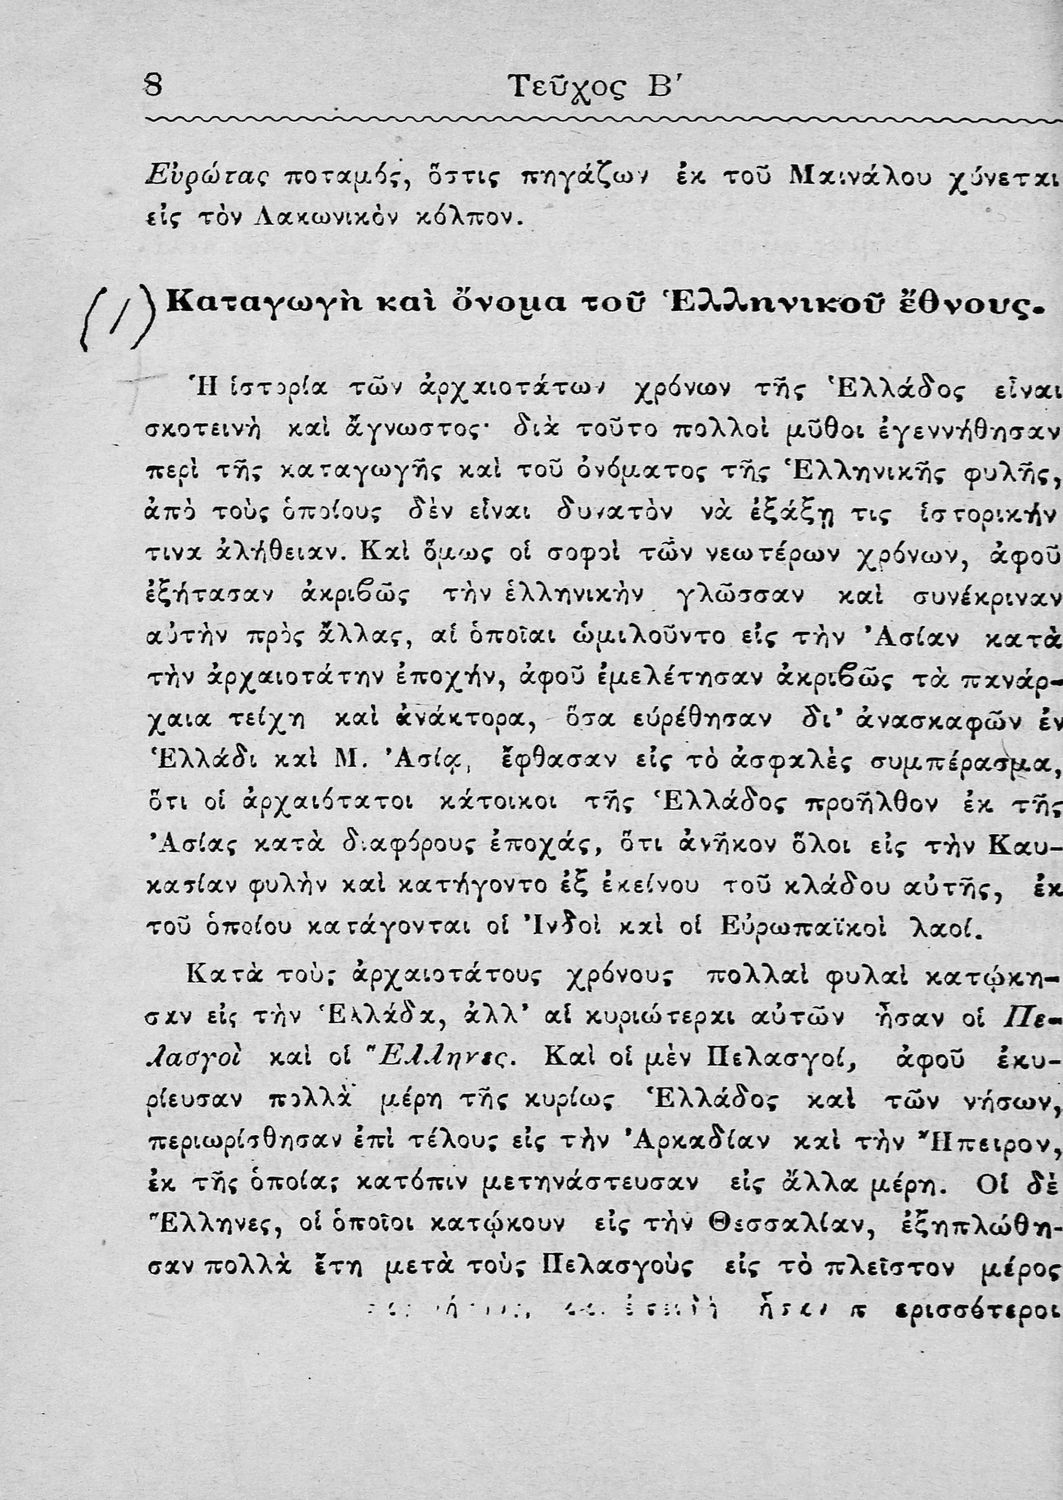 8 Τεῦχος Β΄
Εὐρώτας ποταμός, ὅστις πηγάζων ἐκ τοῦ Μαινάλου χύνεται
εἰς τὸν Λακωνικὸν κόλπον.
(1) Καταγωγὴ καὶ ὄνομα τοῦ Ἑλληνικοῦ ἔθνους.
Ἡ ἱστορία τῶν ἀρχαιοτάτων χρόνων τῆς Ἑλλάδος εἶναι
σκοτεινὴ καὶ ἄγνωστος· διὰ τοῦτο πολλοὶ μῦθοι ἐγεννήθησαν
περὶ τῆς καταγωγῆς καὶ τοῦ ὀνόματος τῆς Ἑλληνικῆς φυλῆς,
ἀπὸ τοὺς ὁποίους δὲν εἶναι δυνατὸν νὰ ἐξάξῃ τις ἱστορικήν
τινα ἀλήθειαν. Καὶ ὅμως οἱ σοφοὶ τῶν νεωτέρων χρόνων, ἀφοῦ
ἐξήτασαν ἀκριβῶς τὴν ἑλληνικὴν γλῶσσαν καὶ συνέκριναν
αὐτὴν πρὸς ἄλλας, αἱ ὁποῖαι ὡμιλοῦντο εἰς τὴν Ἀσίαν κατὰ
τὴν ἀρχαιοτάτην ἐποχήν, ἀφοῦ ἐμελέτησαν ἀκριβῶς τὰ πανάρ-
χαια τείχη καὶ ἀνάκτορα, ὅσα εὑρέθησαν δι' ἀνασκαφῶν ἐν
Ἑλλάδι καὶ Μ. Ἀσίᾳ, ἔφθασαν εἰς τὸ ἀσφαλὲς συμπέρασμα,
ὅτι οἱ ἀρχαιότατοι κάτοικοι τῆς Ἑλλάδος προῆλθον ἐκ τῆς
Ἀσίας κατὰ διαφόρους ἐποχάς, ὅτι ἀνῆκον ὅλοι εἰς τὴν Καυ-
κασίαν φυλὴν καὶ κατήγοντο ἐξ ἐκείνου τοῦ κλάδου αὐτῆς, ἐκ
τοῦ ὁποίου κατάγονται οἱ Ἰνδοὶ καὶ οἱ Εὐρωπαϊκοὶ λαοί.
Κατὰ τοὺς ἀρχαιοτάτους χρόνους πολλαὶ φυλαὶ κατῴκη-
σαν εἰς τὴν Ἑλλάδα, ἀλλ' αἱ κυριώτεραι αὐτῶν ἦσαν οἱ Πε-
λασγοὶ καὶ οἱ Ἕλληνες. Καὶ οἱ μὲν Πελασγοί, ἀφοῦ ἐκυ-
ρίευσαν πολλὰ μέρη τῆς κυρίως Ἑλλάδος καὶ τῶν νήσων,
περιωρίσθησαν ἐπὶ τέλους εἰς τὴν Ἀρκαδίαν καὶ τὴν Ἤπειρον,
ἐκ τῆς ὁποίας κατόπιν μετηνάστευσαν εἰς ἄλλα μέρη. Οἱ δὲ
Ἕλληνες, οἱ ὁποῖοι κατῴκουν εἰς τὴν Θεσσαλίαν, ἐξηπλώθη-
σαν πολλὰ ἔτη μετὰ τοὺς Πελασγοὺς εἰς τὸ πλεῖστον μέρος
ἦσαν περισσότεροι